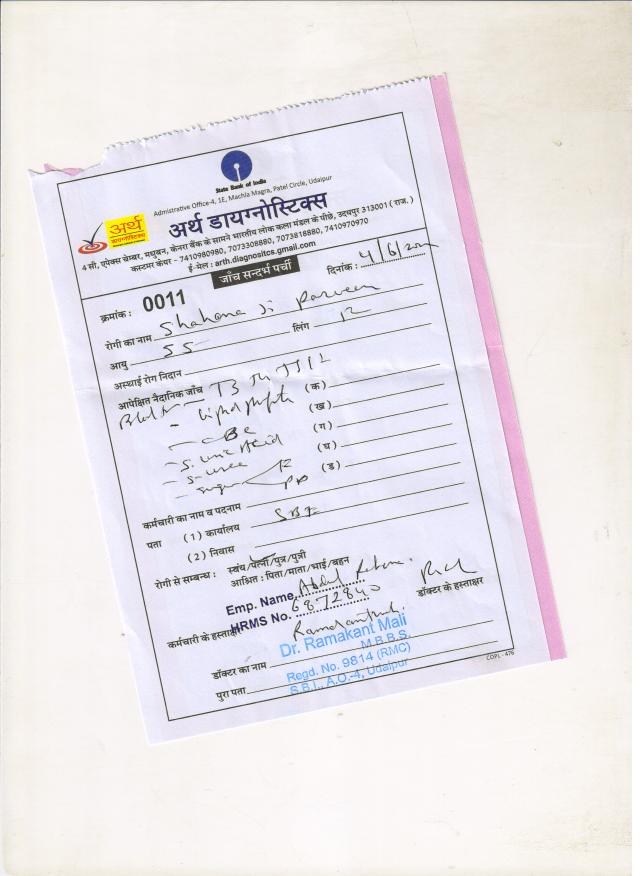 State Bank of India
Admistrative Office-4, 1E, Machla Magra, Patel Circle, Udaipur
अर्थ
डायग्नोस्टिक्स
अर्थ डायग्नोस्टिक्स
4 सी, एपेक्स चेम्बर, मधुबन, केनरा बैंक के सामने भारतीय लोक कला मंडल के पीछे, उदयपुर 313001 ( राज. )
कस्टमर केयर - 7410980980, 7073308880, 7073818880, 7410970970
ई-मेल : arth.diagnositcs.gmail.com
जाँच सन्दर्भ पर्ची
दिनांक : 4/6/20
क्रमांक : 0011
रोगी का नाम Shahana Ji Parveen
आयु 55 लिंग F
अस्थाई रोग निदान
आपेक्षित नैदानिक जाँच T3 T4 TSH
Blood for - Lipid profile (क)
- CBC (ख)
- S. uric Acid (ग)
- S-urea (घ)
- sugar F PP (ड)
कर्मचारी का नाम व पदनाम
पता (1) कार्यालय SBI
(2) निवास
रोगी से सम्बन्ध : स्वंय/पत्नी/पुत्र/पुत्री
आश्रित : पिता/माता/भाई/बहन
Emp. Name Abdul
HRMS No. 6872840
कर्मचारी के हस्ताक्षर
डॉक्टर के हस्ताक्षर
Dr. Ramakant Mali
M.B.B.S.
डॉक्टर का नाम
Regd. No. 9814 (RMC)
पुरा पता
S.B.I., A.O.-4, Udaipur
COPL - 476